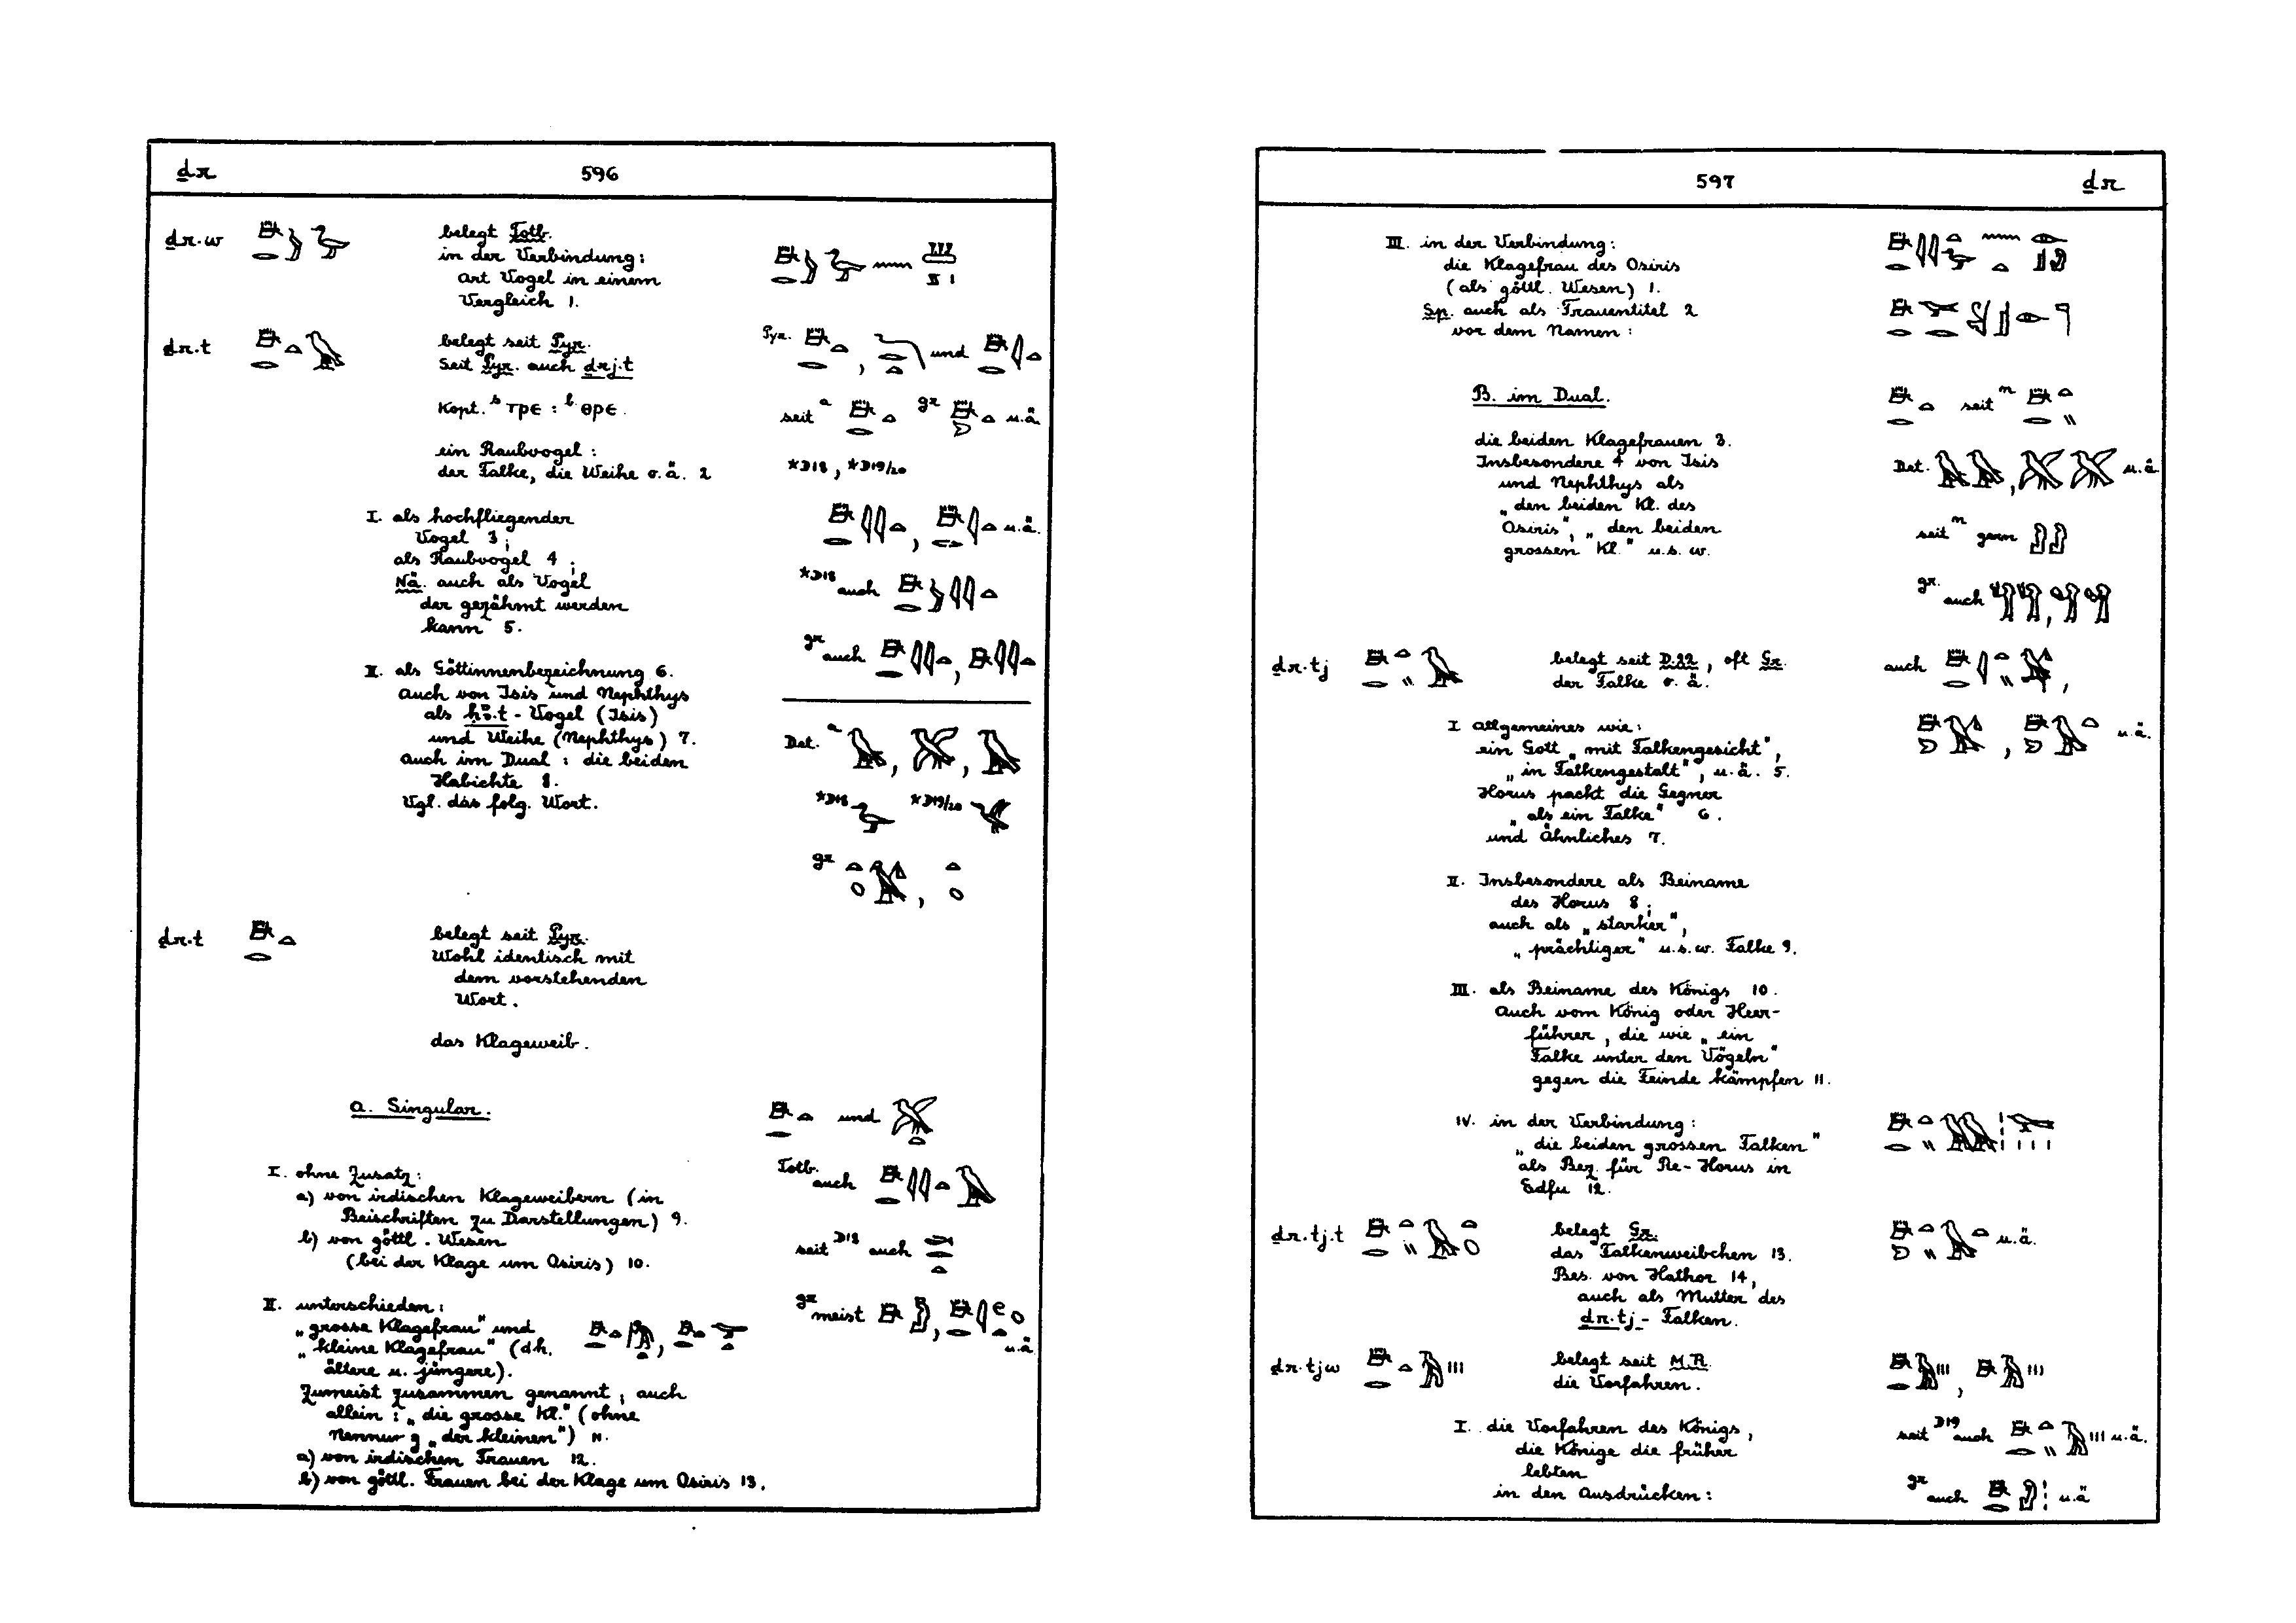 ḏr 596
ḏr·w
belegt Totb.
in der Verbindung:
Art Vogel in einem
Vergleich 1.
ḏr·t
belegt seit Pyr.
Seit Pyr. auch ḏrj·t
Pyr. , und
Kopt. ˢ ⲧⲣⲉ : ᵇ ⲑⲣⲉ.
seit ᵃ gr u.ä.
ein Raubvogel:
der Falke, die Weihe o.ä. 2
*D18, *D19/20
I. als hochfliegender
Vogel 3;
als Raubvogel 4;
Nä. auch als Vogel
der gezähmt werden
kann 5.
, u.ä.
*D18 auch
gr auch ,
II. als Göttinnenbezeichnung 6.
Auch von Isis und Nephthys
als - Vogel (Isis)
und Weihe (Nephthys) 7.
Auch im Dual: die beiden
Habichte 8.
Vgl. das folg. Wort.
Det. ᵃ , ,
*D18 *D19/20
gr ,
ḏr·t
belegt seit Pyr.
Wohl identisch mit
dem vorstehenden
Wort.
das Klageweib.
a. Singular.
und
I. ohne Zusatz:
a) von irdischen Klageweibern (in
Beischriften zu Darstellungen) 9.
b) von göttl. Wesen
(bei der Klage um Osiris) 10.
Totb. auch
seit D18 auch
gr meist , u.ä
II. unterschieden:
„grosse Klagefrau" und
„kleine Klagefrau" (dh. ,
ältere u. jüngere).
Zumeist zusammen genannt; auch
allein: „die grosse Kl." (ohne
Nennung „der kleinen") 11.
a) von irdischen Frauen 12.
b) von göttl. Frauen bei der Klage um Osiris 13.
597 ḏr
III. in der Verbindung:
die Klagefrau des Osiris
(als göttl. Wesen) 1.
Sp. auch als Frauentitel 2
vor dem Namen:
B. im Dual.
seit ᵐ
die beiden Klagefrauen 3.
Insbesondere 4 von Isis
und Nephthys als
„den beiden Kl. des
Osiris", „den beiden
grossen Kl." u.s.w.
Det. , u.ä.
seit ᵐ gern
gr. auch ,
ḏr·tj
belegt seit D.22, oft Gr.
der Falke o.ä.
auch ,
, u.ä.
I allgemeines wie:
ein Gott „mit Falkengesicht",
„in Falkengestalt", u.ä. 5.
Horus packt die Gegner
„als ein Falke" 6.
und Ähnliches 7.
II. Insbesondere als Beiname
des Horus 8;
auch als „starker",
„prächtiger" u.s.w. Falke 9.
III. als Beiname des Königs 10.
Auch vom König oder Heer-
führer, die wie „ein
Falke unter den Vögeln"
gegen die Feinde kämpfen 11.
IV. in der Verbindung:
„die beiden grossen Falken"
als Bez. für Re-Horus in
Edfu 12.
ḏr·tj·t
belegt Gr.
das Falkenweibchen 13.
Bes. von Hathor 14,
auch als Mutter des
ḏr·tj - Falken.
u.ä.
ḏr·tjw
belegt seit M.R.
die Vorfahren.
,
I. die Vorfahren des Königs,
die Könige die früher
lebten
in den Ausdrücken:
seit D19 auch u.ä.
gr auch u.ä